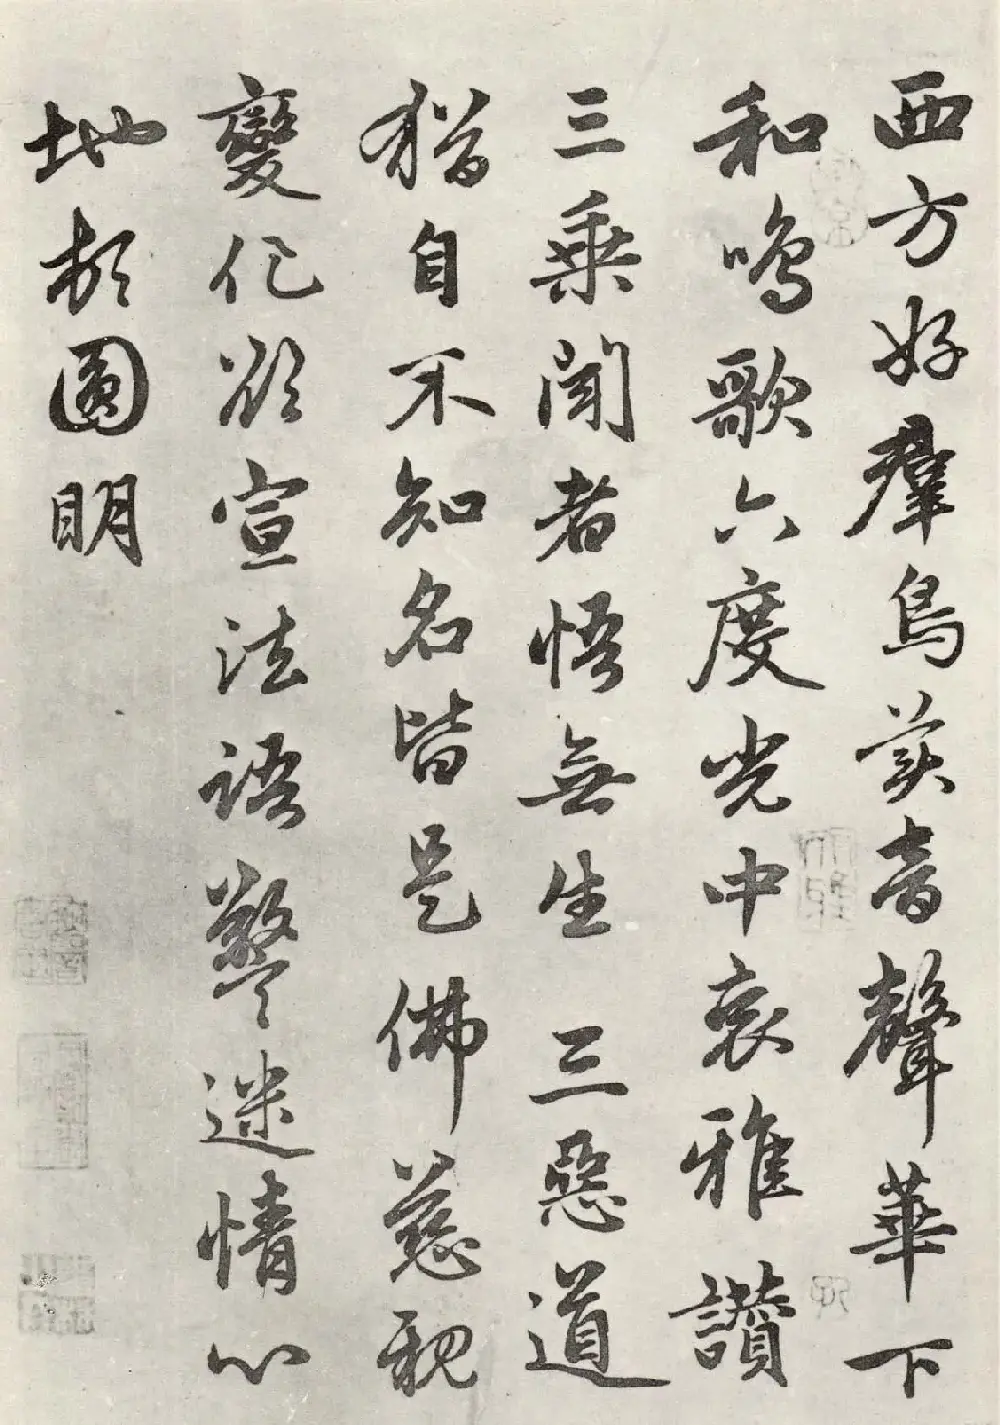 西方好羣鳥美音聲華下
和鳴歌六度光中哀雅讚
三乘聞者悟無生三惡道
猶自不知名皆是佛慈親
變化欲宣法語警迷情心
地於圓明